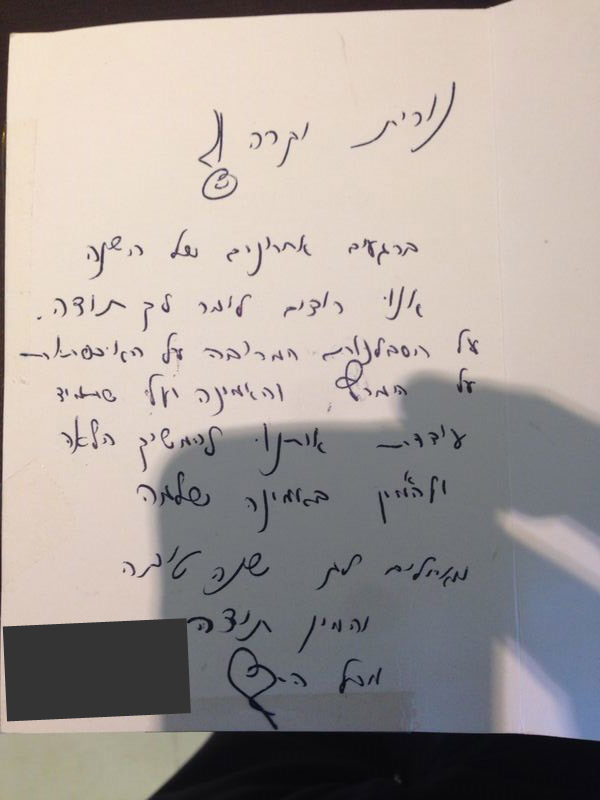 נורית יקרה
ברגעים אחרונים של השנה
אנו רוצים לומר לך תודה.
על הסבלנות המרובה על האיכפתיות
על המרץ והאמונה ועל שתמיד
עודדת אותנו להמשיך הלאה
ולהאמין באמונה שלמה
מאחלים לך שנה טובה
והמון תודה
מכל הלב